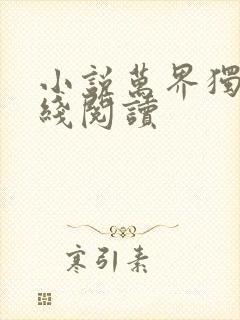 小說萬界獨
綫閱讀
寒引素